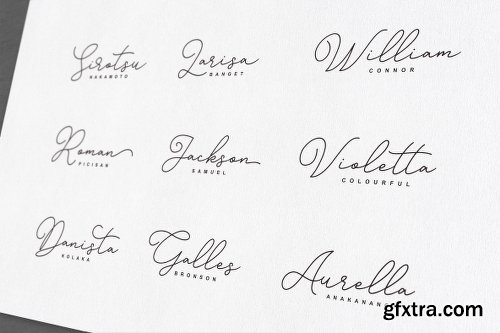 Sirotsu
NAKAMOTO
Larisa
BANGET
William
CONNOR
Roman
PICISAN
Jackson
SAMUEL
Violetta
COLOURFUL
Danista
KOLAKA
Galles
BRONSON
Aurella
ANAKANANDA
gfxtra.com